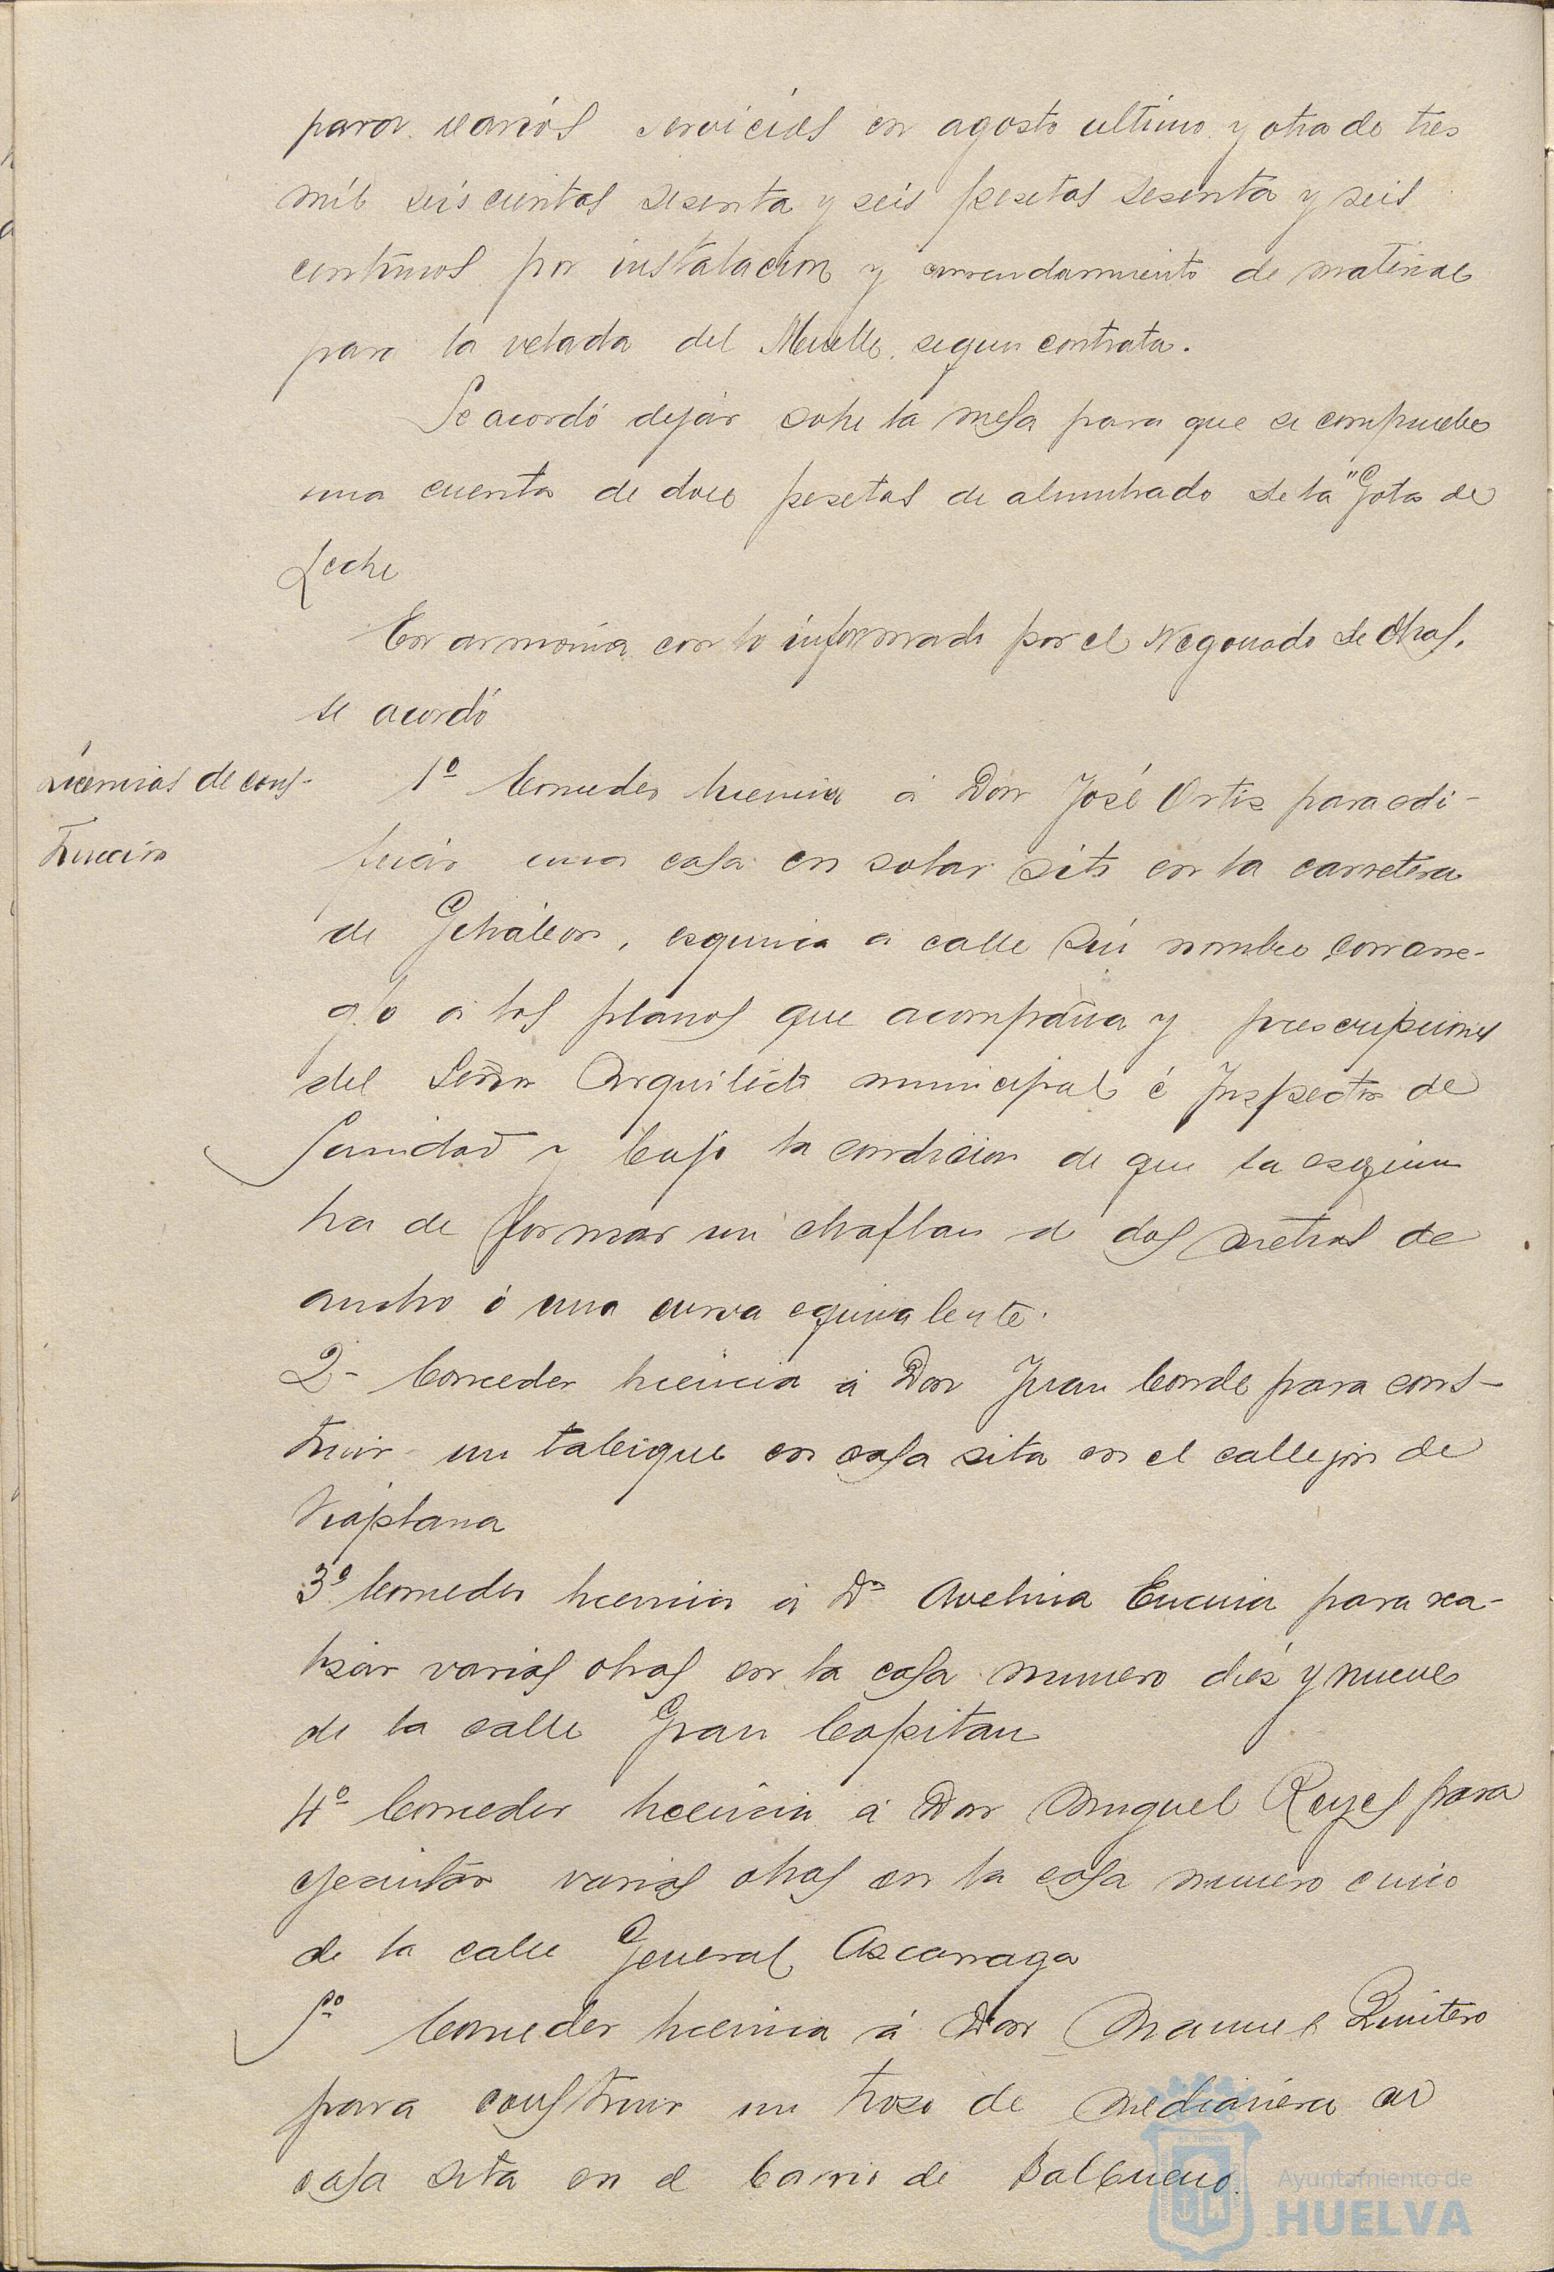 para varios servicios en agosto ultimo y otra de tres
mil seiscientas sesenta y seis pesetas sesenta y seis
centimos por instalacion y arrendamiento de material
para la velada del Muelle, segun contrata.
Se acordó dejar sobre la mesa para que se compruebe
una cuenta de doce pesetas de alumbrado de la "Gota de
Leche
En armonia con lo informado por el Negociado de Obras,
se acordó
Licencias de cons-
trucción
1º Conceder licencia á Don José Ortiz para edi-
ficar una casa en solar sito en la carretera
de Gibraleon, esquina a calle sin nombre con arre-
glo a los planos que acompaña y prescripciones
del Señor Arquitecto municipal é Inspector de
Sanidad y bajo la condicion de que la esquina
ha de formar un chaflan de dos metros de
ancho ó una curva equivalente.
2- Conceder licencia á Don Juan Conde para cons-
truir un tabique en casa sita en el callejon de
Viaplana
3º Conceder licencia á Dª Avelina Encina para rea-
lizar varias obras en la casa numero diez y nueve
de la calle Gran Capitan
4º Conceder licencia á Don Miguel Reyes para
ejecutar varias obras en la casa numero cinco
de la calle General Azcarraga
5º Conceder licencia á Don Manuel Quintero
para construir un trozo de medianera en
casa sita en el barrio de Balbueno.
Ayuntamiento de
HUELVA